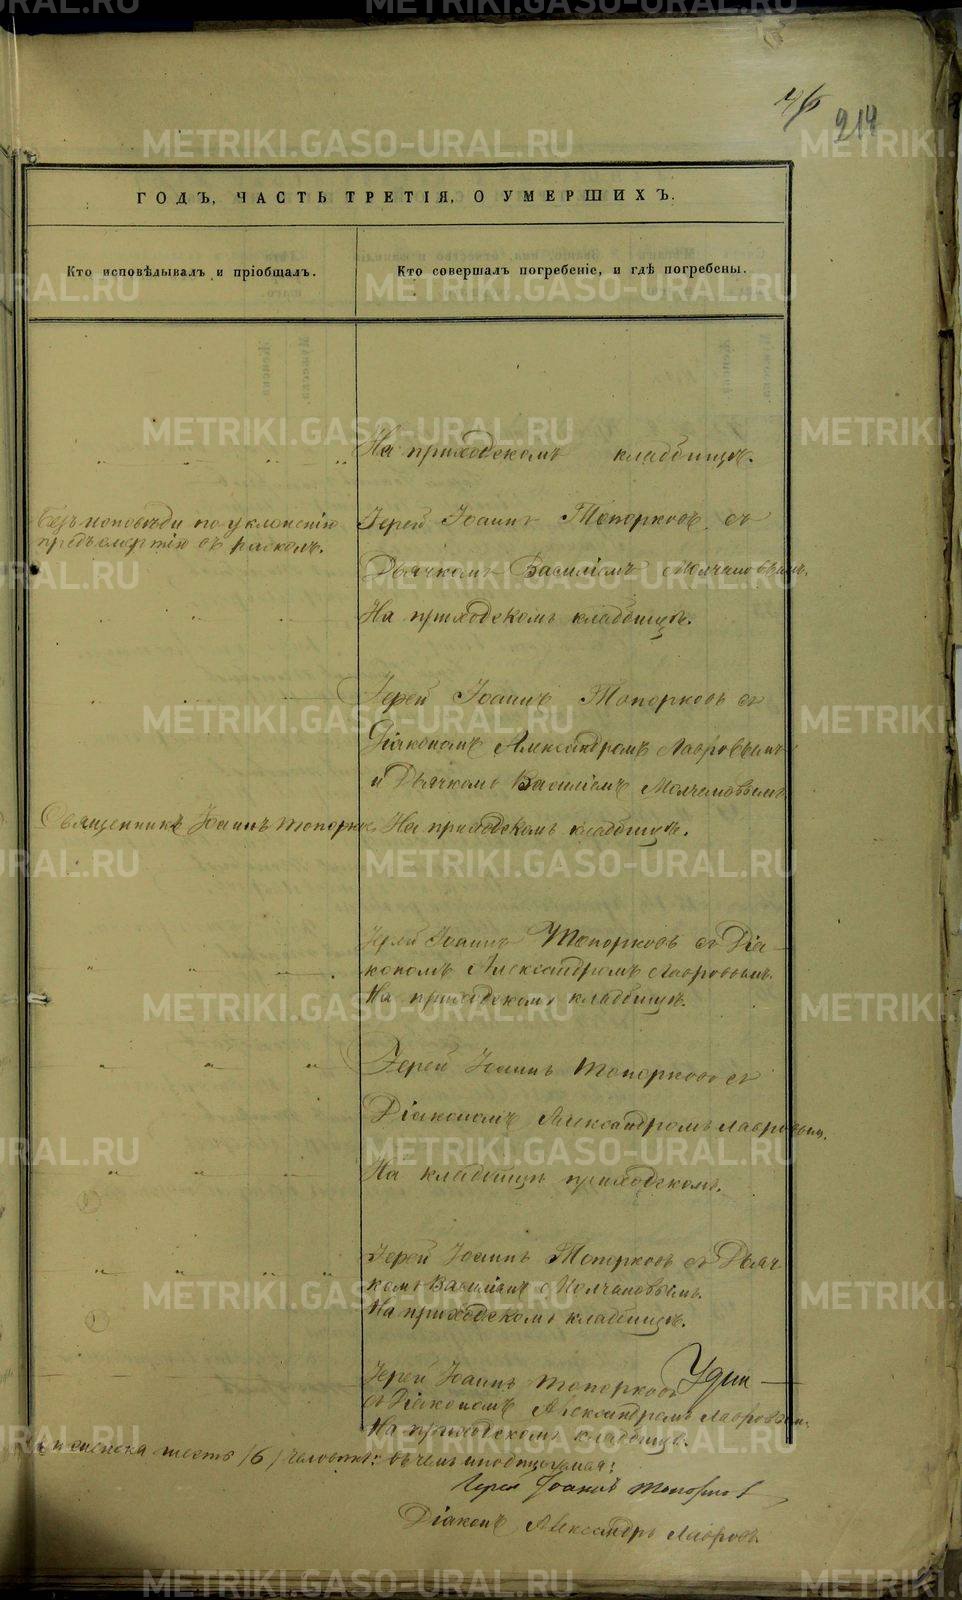 146
214
ГОДЪ, ЧАСТЬ ТРЕТІЯ, О УМЕРШИХЪ.
Кто исповѣдывалъ и пріобщалъ.
Кто совершалъ погребеніе, и гдѣ погребены.
На приходскомъ кладбищѣ.
Безъ исповѣди по уклоненію
предъ смертію въ расколъ.
Іерей Іоаннъ Топорковъ съ
Дьячкомъ Василіемъ Молчановымъ.
На приходскомъ кладбищѣ.
Іерей Іоаннъ Топорковъ съ
Діакономъ Александромъ Лавровымъ
и Дьячкомъ Василіемъ Молчановымъ.
Священникъ Іоаннъ Топорков
На приходскомъ кладбищѣ.
Іерей Іоаннъ Топорковъ съ Діа-
кономъ Александромъ Лавровымъ.
На приходскомъ кладбищѣ.
Іерей Іоаннъ Топорковъ съ
Діакономъ Александромъ Лавровым.
На кладбищѣ приходскомъ.
Іерей Іоаннъ Топорковъ съ Дьяч
комъ Василіемъ Молчановымъ.
На приходскомъ кладбищѣ.
Іерей Іоаннъ Топорковъ
съ Діакономъ Александромъ Лавровым.
На приходскомъ кладбищѣ.
женска шесть /6/ человѣкъ: въ чемъ и подписуемся:
Іерей Іоаннъ Топорков
Діаконъ Александръ Лавровъ
METRIKI.GASO-URAL.RU